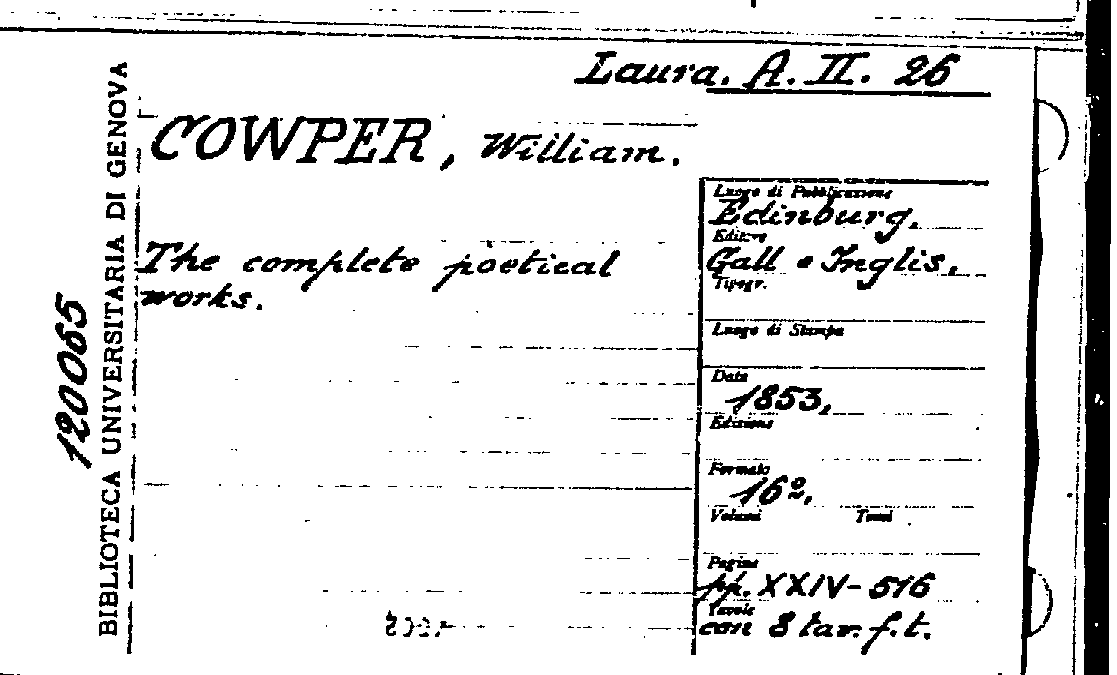 Laura. A. II. 26
COWPER, William.
The complete poetical
works.
Luogo di Pubblicazione
Edinburg,
Editore
Gall e Inglis,
Tipogr.
Luogo di Stampa
Data
1853,
Edizione
Formato
16º,
Volumi Tomi
Pagine
pp. XXIV-516
Tavole
con 8 tav. f. t.
120065
BIBLIOTECA UNIVERSITARIA DI GENOVA